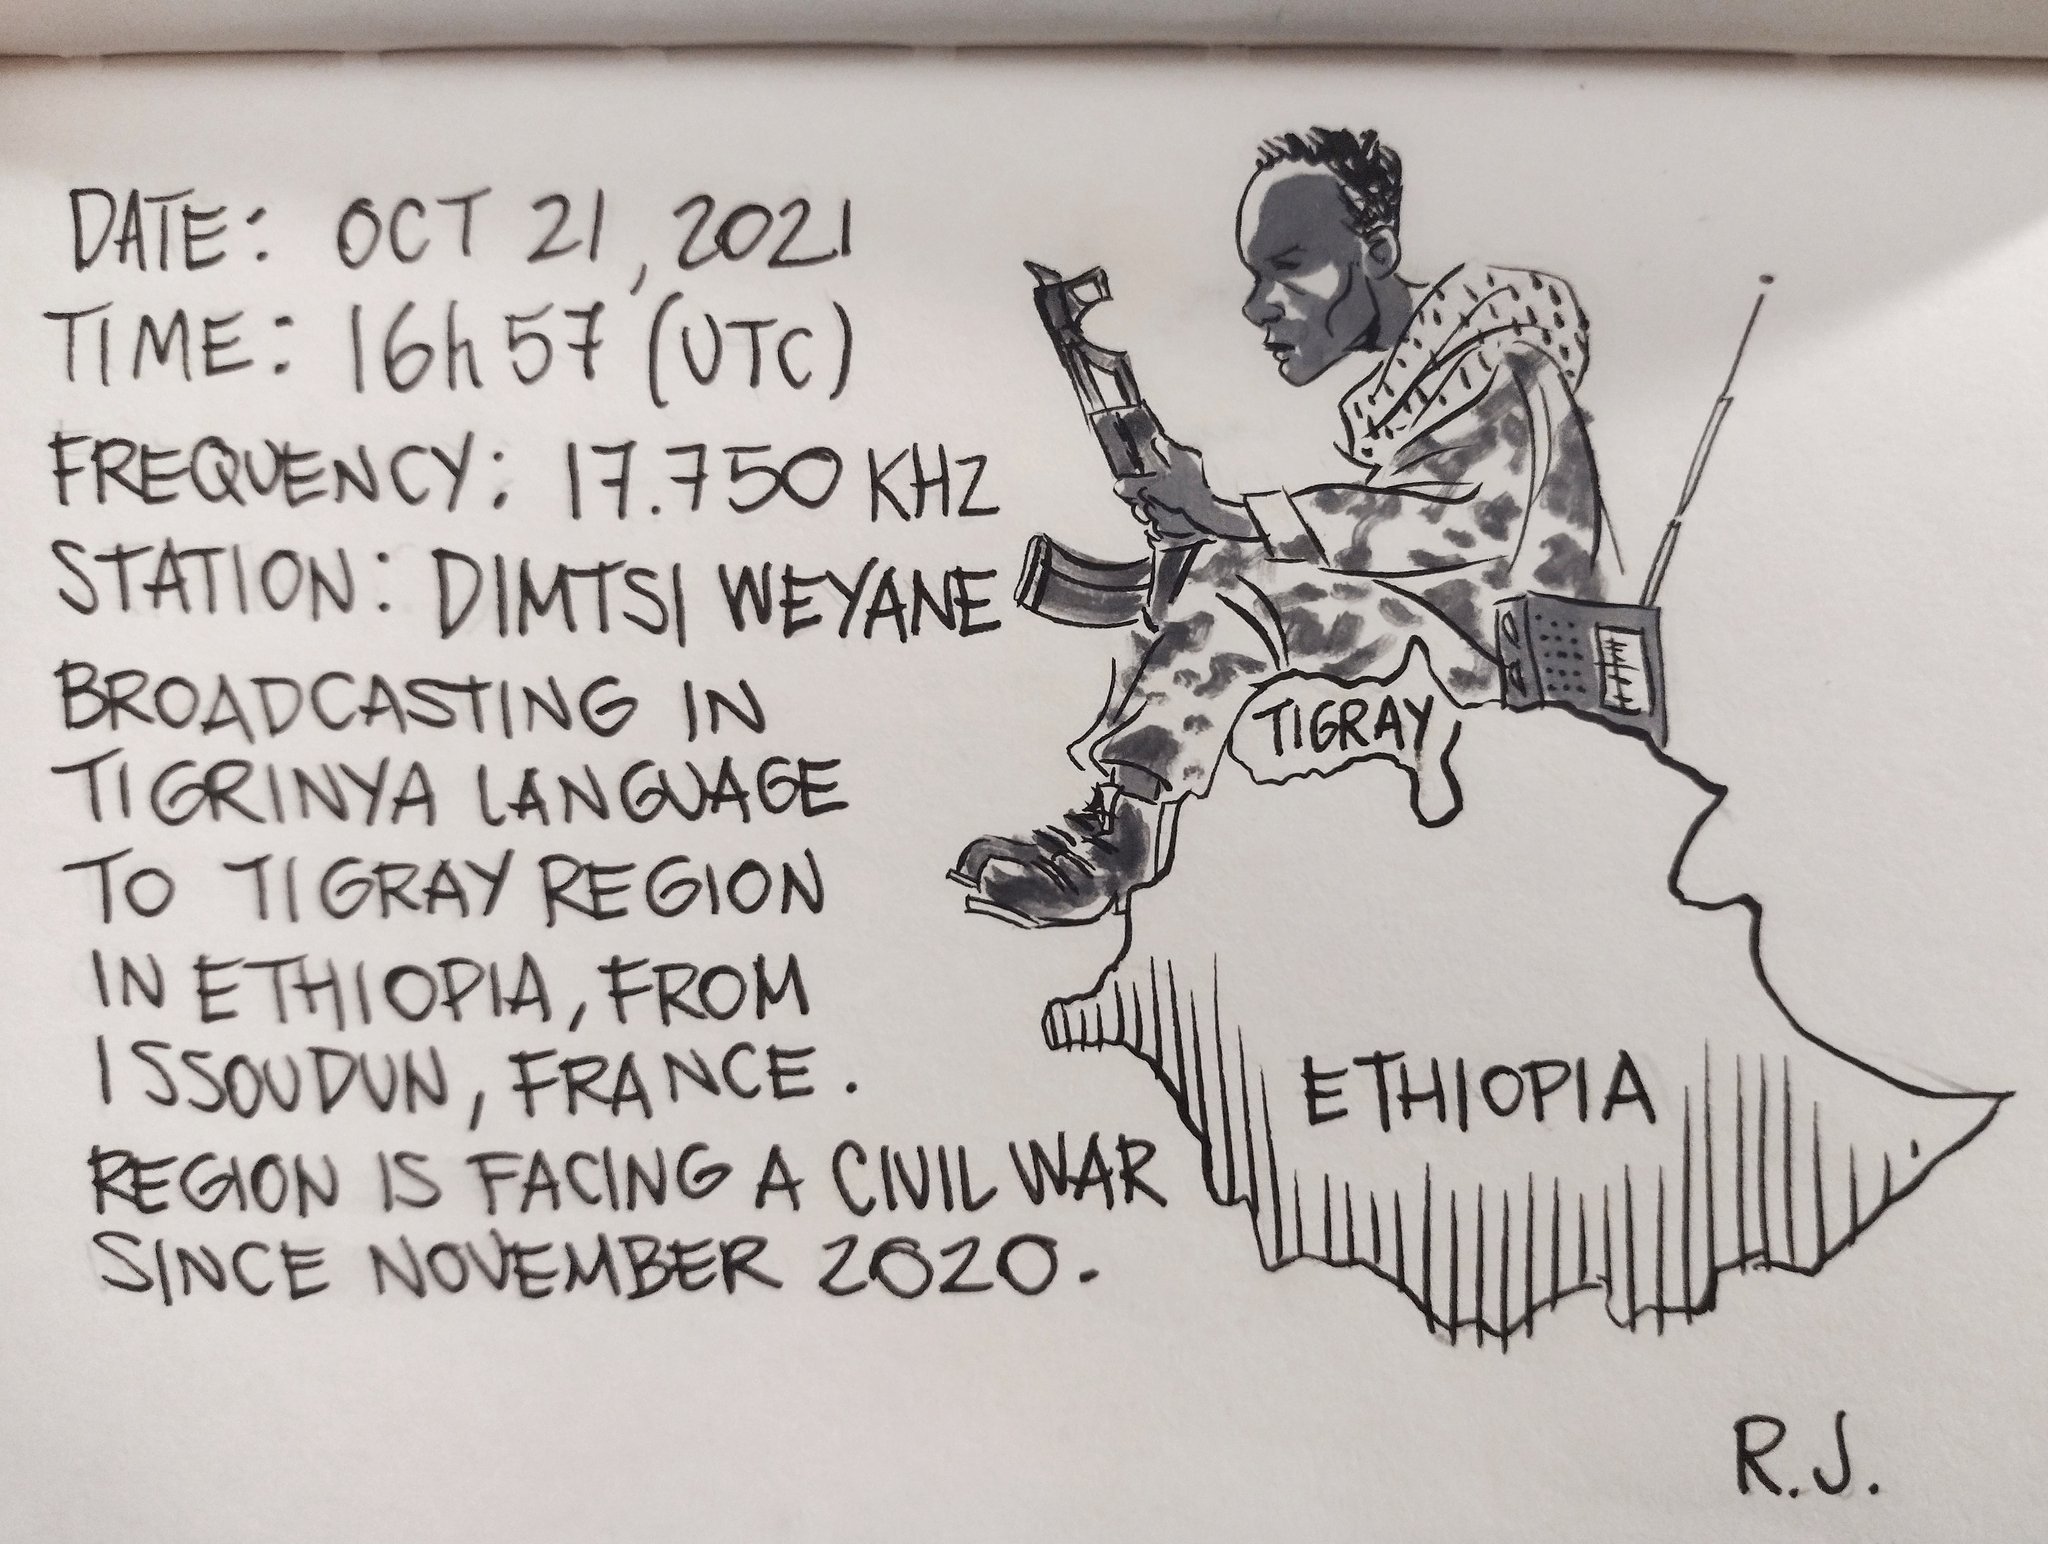 DATE: OCT 21, 2021
TIME: 16h57 (UTC)
FREQUENCY: 17.750 KHz
STATION: DIMTSI WEYANE
BROADCASTING IN
TIGRINYA LANGUAGE
TO TIGRAY REGION
IN ETHIOPIA, FROM
ISSOUDUN, FRANCE.
REGION IS FACING A CIVIL WAR
SINCE NOVEMBER 2020.
TIGRAY
ETHIOPIA
R.J.